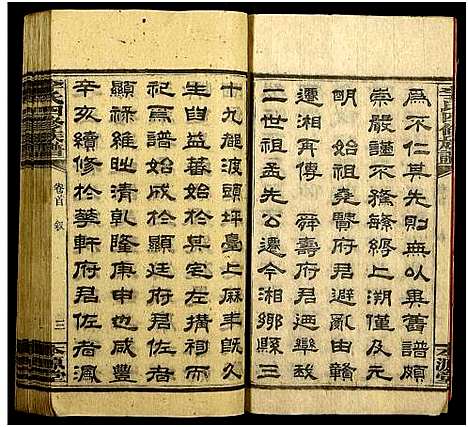 為不仁其先則無以異舊譜頗
崇嚴謹不務繁縟上溯僅及元
明　始祖堯賢府君避亂由贛
遷湘再傳　舜壽府君迺肇啟
二世祖孟先公遷今湘鄉縣三
十九都渡頭坪臺上麻丰既久
生齒益蕃始於其宅左搆祠而
祀焉譜始成於顯廷府君佐者
顯祿維時清乾隆庚申也咸豐
辛亥續修於華軒府君佐者渢
氏四修族譜
卷首　敘
三
本源堂